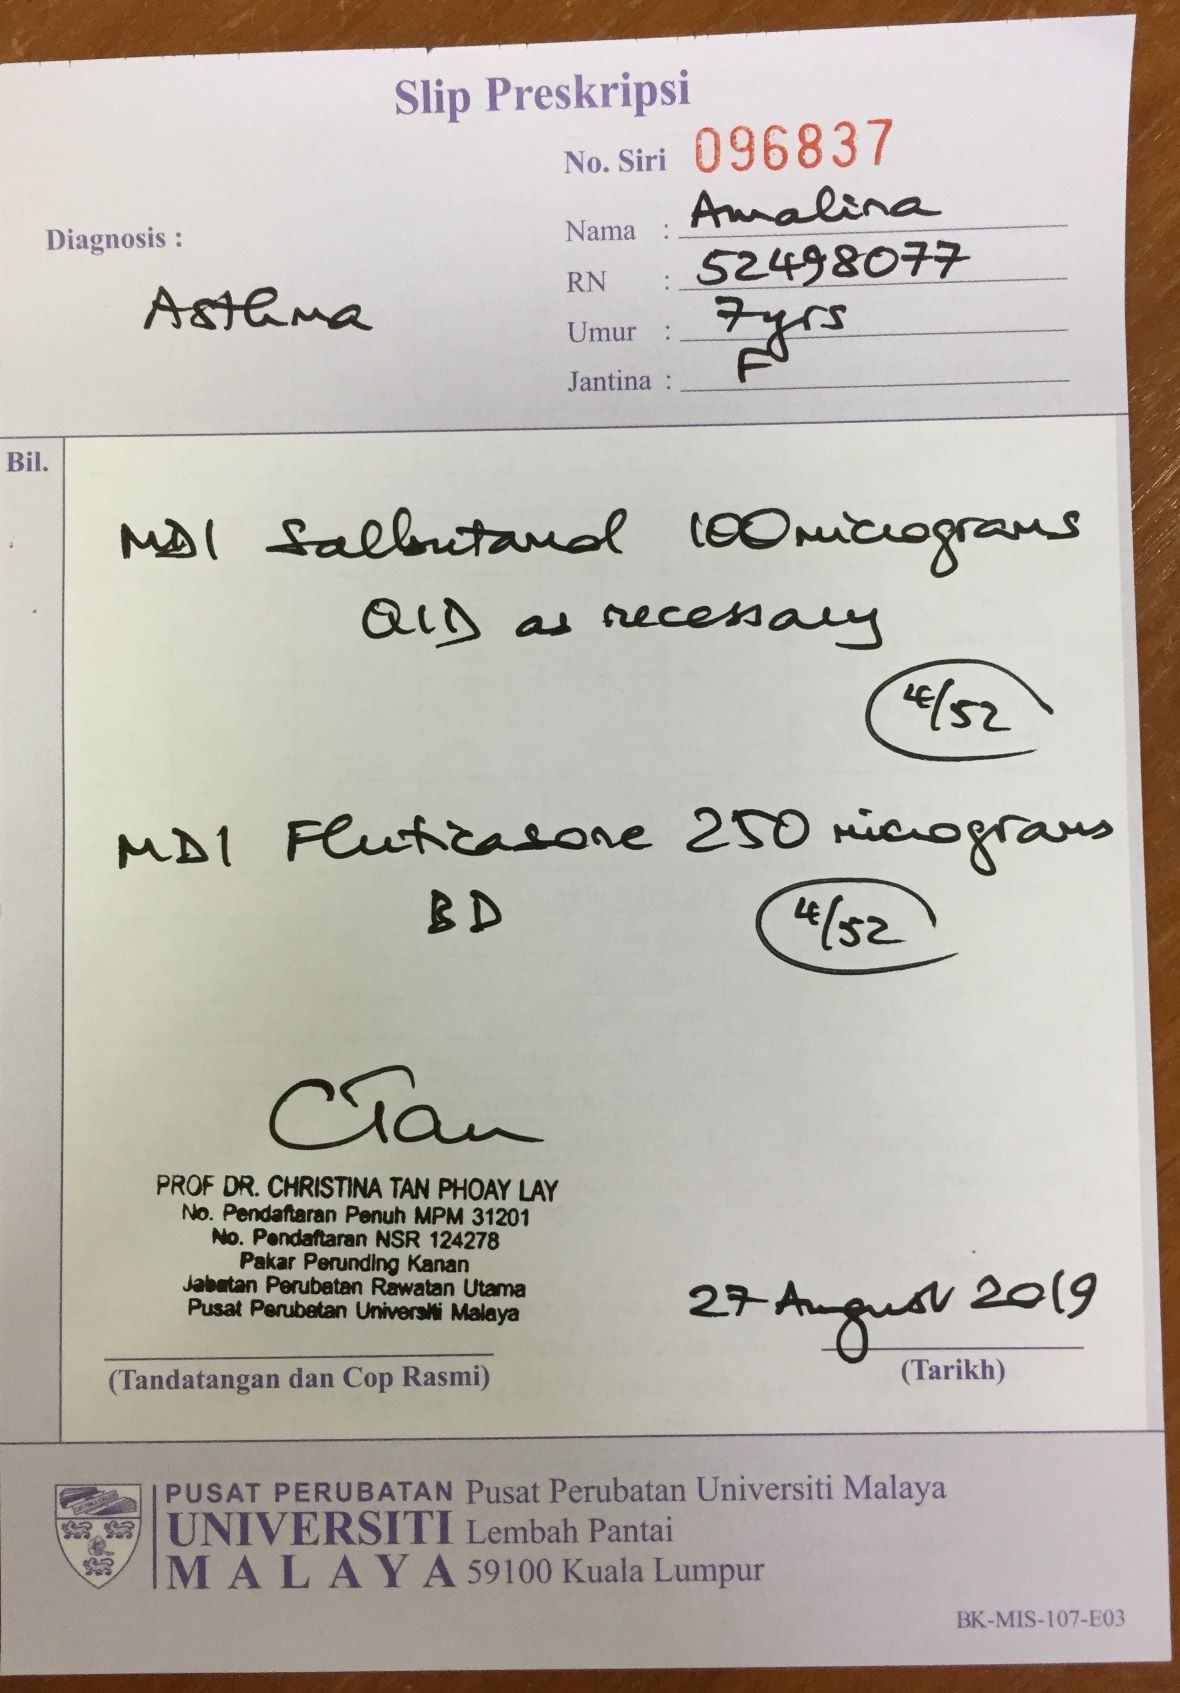 Slip Preskripsi
No. Siri 096837
Nama : Amalina
Diagnosis :
RN : 52498077
Asthma
Umur : 7yrs
Jantina : F
Bil.
MDI Salbutamol 100 micrograms
QID as necessary
4/52
MDI Fluticasone 250 micrograms
BD 4/52
CTan
PROF DR. CHRISTINA TAN PHOAY LAY
No. Pendaftaran Penuh MPM 31201
No. Pendaftaran NSR 124278
Pakar Perunding Kanan
Jabatan Perubatan Rawatan Utama
Pusat Perubatan Universiti Malaya
27 August 2019
(Tandatangan dan Cop Rasmi) (Tarikh)
PUSAT PERUBATAN Pusat Perubatan Universiti Malaya
UNIVERSITI Lembah Pantai
MALAYA 59100 Kuala Lumpur
BK-MIS-107-E03